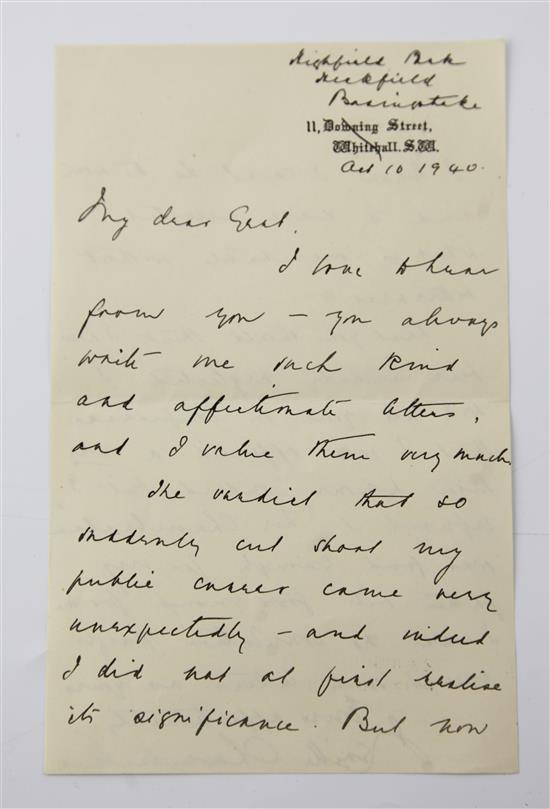 Highfield Park
Heckfield
Basingstoke
11, Downing Street,
Whitehall. S.W.
Oct 10 1940.
My dear
I love to hear
from you – you always
write me such kind
and affectionate letters,
and I value them very much.
The verdict that so
suddenly cut short my
public career came very
unexpectedly – and indeed
I did not at first realise
its significance. But now